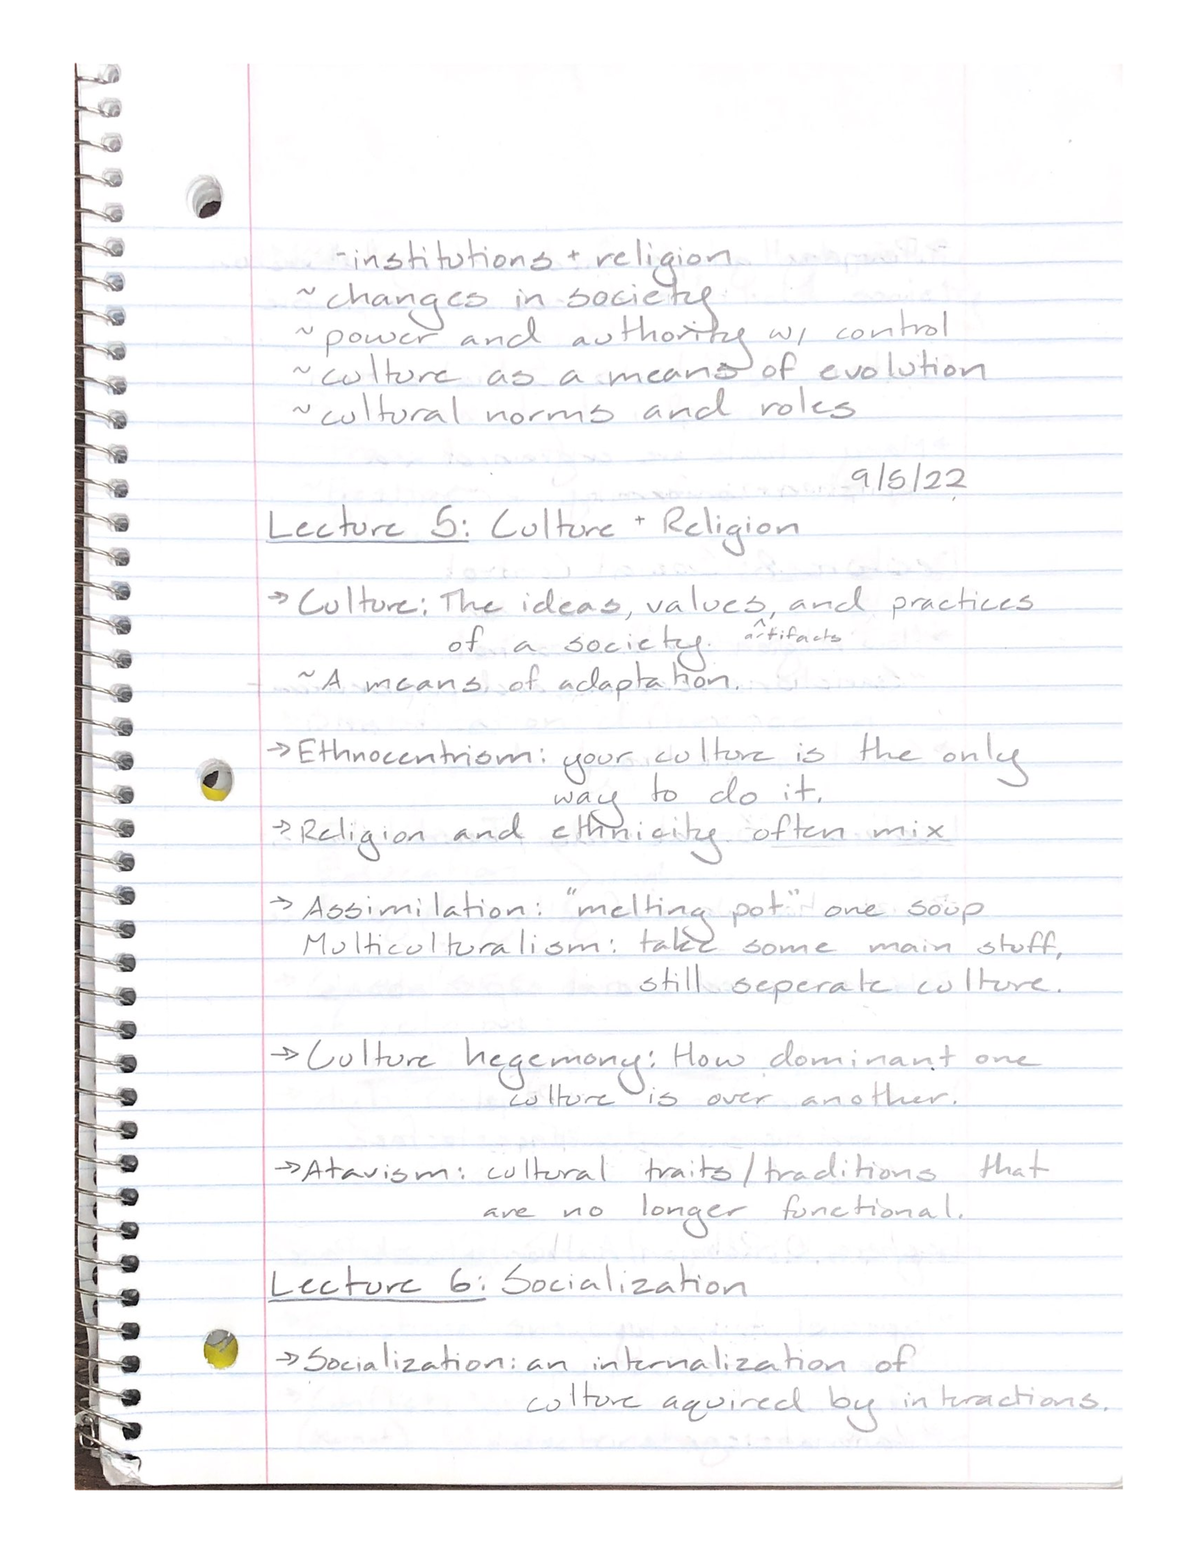 -institutions + religion
~changes in society
~power and authority w/ control
~culture as a means of evolution
~cultural norms and roles
9/5/22
Lecture 5: Culture + Religion
→Culture: The ideas, values, and practices
^artifacts
of a society.
~A means of adaptation.
→Ethnocentrism: your culture is the only
way to do it.
→Religion and ethnicity often mix
→Assimilation: "melting pot" one soup
Multiculturalism: take some main stuff,
still seperate culture.
→Culture hegemony: How dominant one
culture is over another.
→Atavism: cultural traits/traditions that
are no longer functional.
Lecture 6: Socialization
→Socialization: an internalization of
culture aquired by interactions.